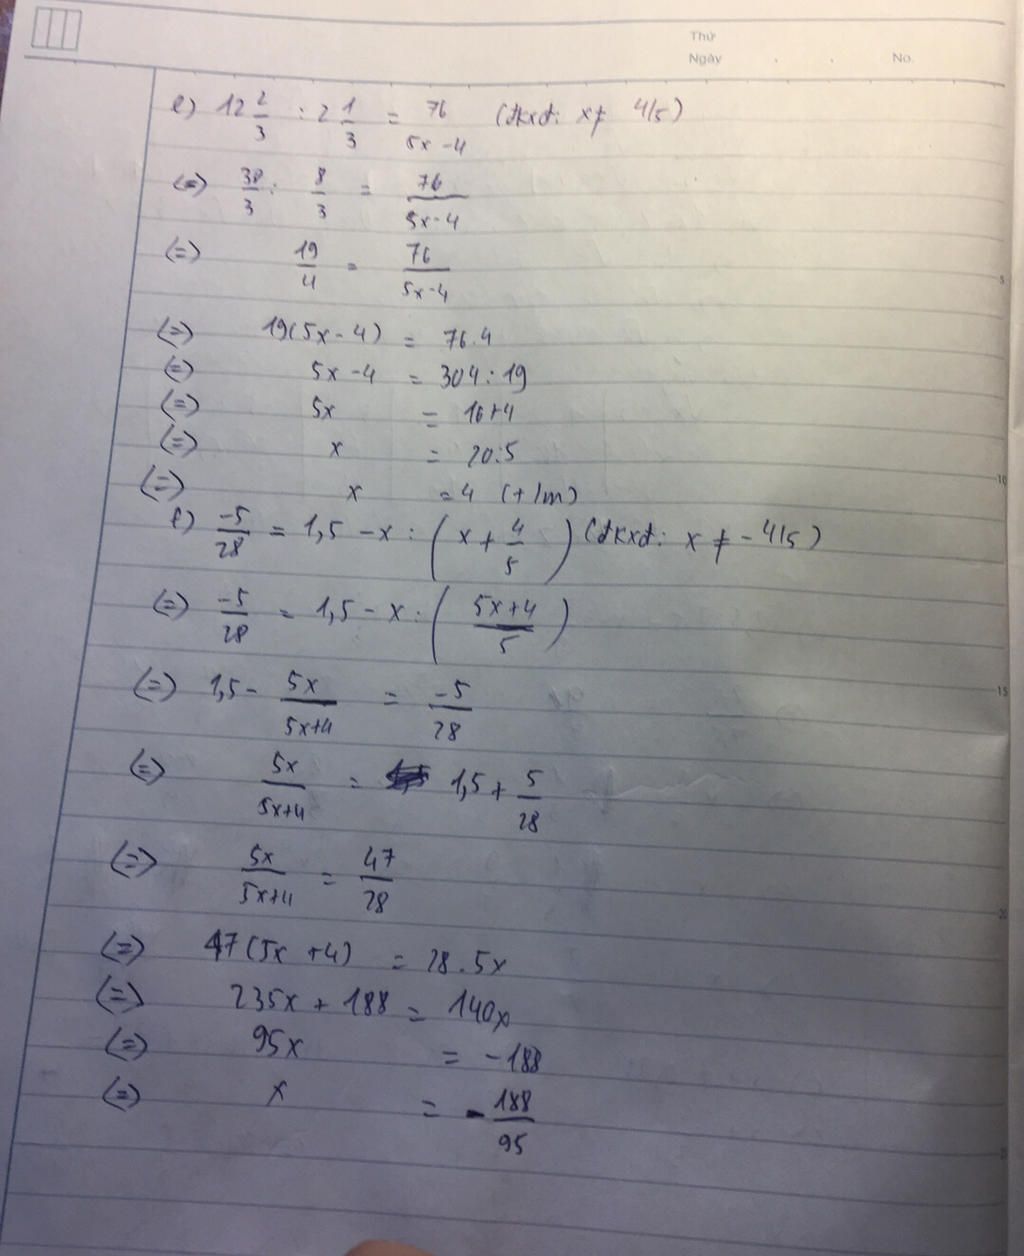 Thứ
Ngày No.
e) 12 2/3 : 2 1/3 = 76/5x-4 (đkxđ: x ≠ 4/5)
(=) 38/3 : 8/3 = 76/5x-4
(=) 19/4 = 76/5x-4
5
(=) 19(5x-4) = 76.4
(=) 5x-4 = 304:19
(=) 5x = 16+4
(=) x = 20:5
10
(=) x = 4 (t/m)
f) -5/28 = 1,5 - x : (x + 4/5) (đkxđ: x ≠ -4/5)
(=) -5/28 = 1,5 - x : (5x+4/5)
(=) 1,5 - 5x/5x+4 = -5/28
15
(=) 5x/5x+4 = 1,5 + 5/28
(=) 5x/5x+4 = 47/28
20
(=) 47(5x+4) = 28.5x
(=) 235x + 188 = 140x
(=) 95x = -188
(=) x = -188/95